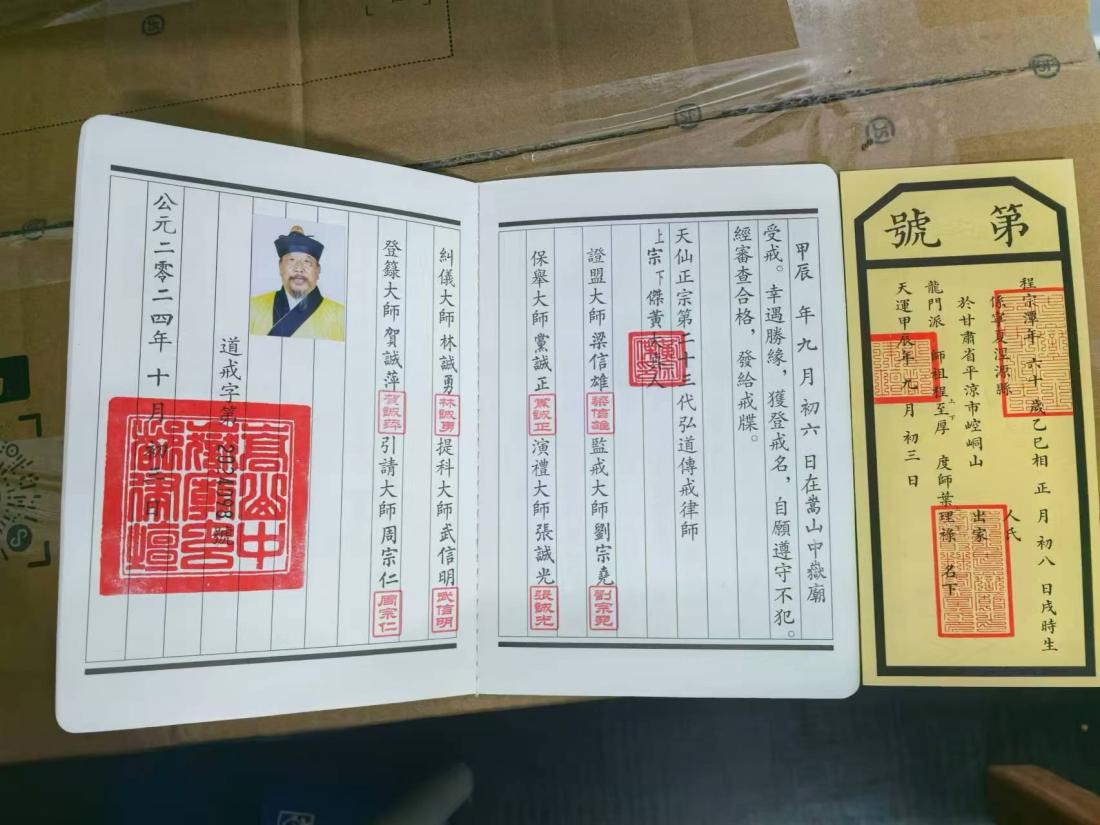 甲辰 年九月初六 日在嵩山中嶽廟
受戒。幸遇勝緣，獲登戒名，自願遵守不犯。
經審查合格，發給戒牒。
天仙正宗第二十三代弘道傳戒律師
上宗下傑黃大真人
證盟大師梁信雄 梁信雄 監戒大師劉宗堯
保舉大師黨誠正 黨誠正 演禮大師張誠光 張誠光
糾儀大師林誠勇 林誠勇 提科大師武信明 武信明
登籙大師賀誠萍 賀誠萍 引請大師周宗仁 周宗仁
道戒字第 號
公元二零二四年十月初三日
第 號
程宗潭年 六十 歲乙巳相 正 月 初八 日戌時生
係寧夏涇源縣 人氏
於甘肅省平涼市崆峒山 出家
龍門派 師祖程至厚 度師葉理祿 名下
上 下
天運甲辰年九 月 初三日